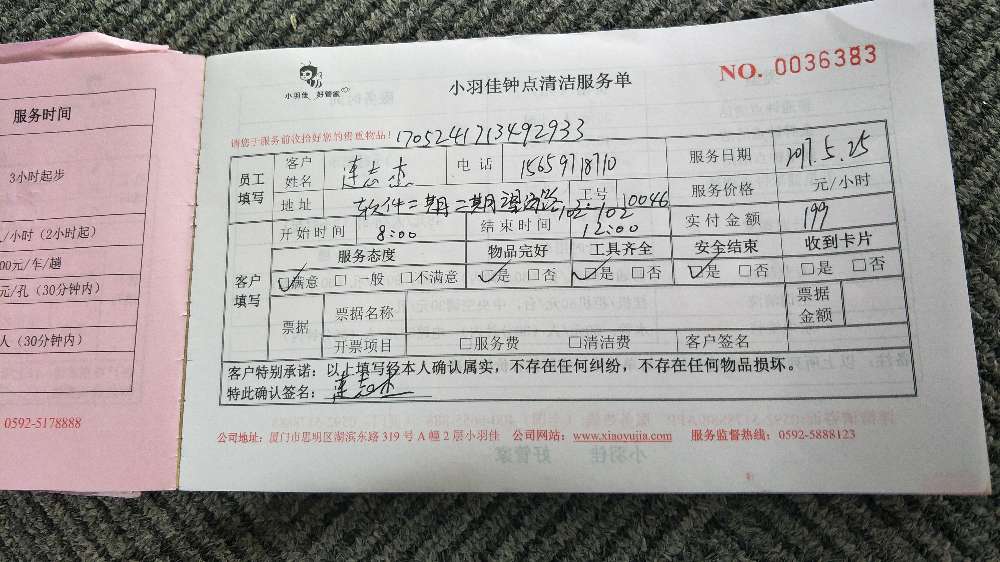 服务时间
3小时起步
/小时（2小时起）
00元/车/趟
元/孔（30分钟内）
人（30分钟内）
0592-5178888
小羽佳 好管家
小羽佳钟点清洁服务单
NO. 0036383
请您于服务前收拾好您的贵重物品！ 1705241713492933
员工填写 客户姓名 连志杰 电话 15659718710 服务日期 2017.5.25
地址 软件二期二期望海路102-102 工号 10046 服务价格 元/小时
客户填写 开始时间 8:00 结束时间 12:00 实付金额 199
服务态度 物品完好 工具齐全 安全结束 收到卡片
☑满意 □一般 □不满意 ☑是 □否 ☑是 □否 ☑是 □否 □是 □否
票据 票据名称 票据金额
开票项目 □服务费 □清洁费 客户签名
客户特别承诺：以上填写经本人确认属实，不存在任何纠纷，不存在任何物品损坏。
特此确认签名：连志杰
公司地址：厦门市思明区湖滨东路319号A幢2层小羽佳 公司网站：www.xiaoyujia.com 服务监督热线：0592-5888123